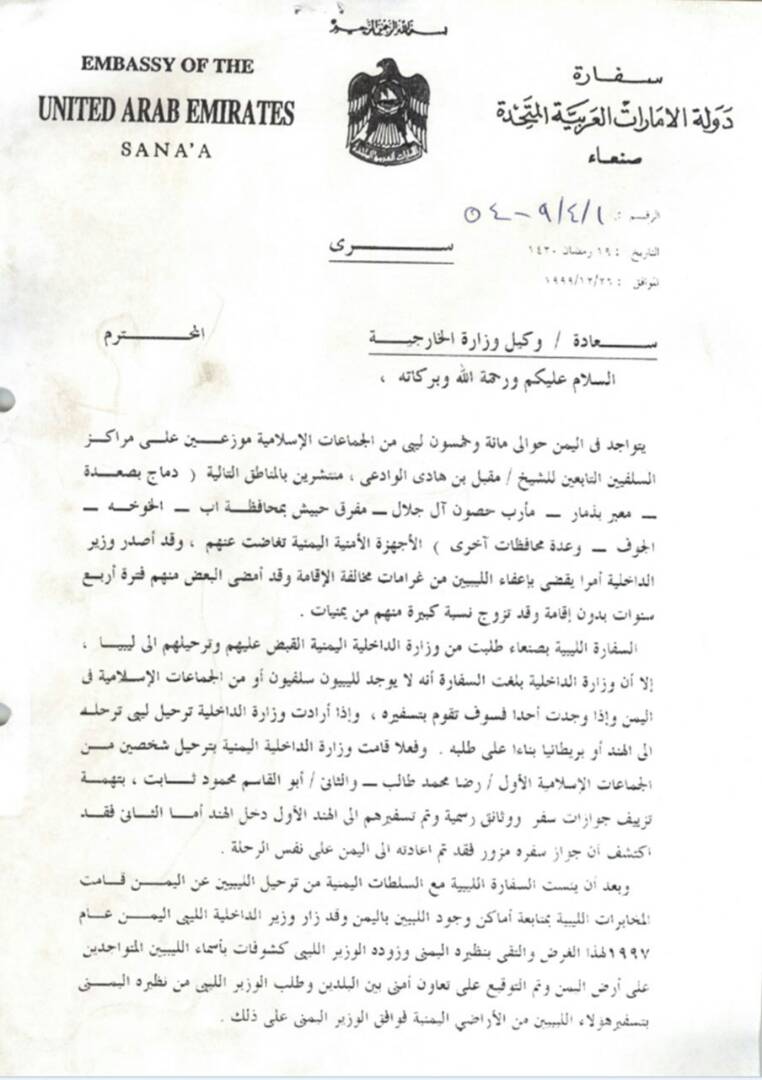 بسم الله الرحمن الرحيم
EMBASSY OF THE
UNITED ARAB EMIRATES
SANA'A
سفارة
دولة الامارات العربية المتحدة
صنعاء
الرقم : ٥٤ - ٩/٤/١
التاريخ : ١٩ رمضان ١٤٢٠
الموافق : ١٩٩٩/١٢/٢٦
سرى
سعادة / وكيل وزارة الخارجية المحترم
السلام عليكم ورحمة الله وبركاته ،
يتواجد فى اليمن حوالى مائة وخمسون ليبى من الجماعات الإسلامية موزعين على مراكز
السلفيين التابعين للشيخ / مقبل بن هادى الوادعى ، منتشرين بالمناطق التالية ( دماج بصعدة
ـ معبر بذمار ـ مأرب حصون آل جلال ـ مفرق حبيش بمحافظة اب ـ الخوخه ـ
الجوف ـ وعدة محافظات آخرى ) الأجهزة الأمنية اليمنية تغاضت عنهم ، وقد أصدر وزير
الداخلية أمرا يقضى بإعفاء الليبين من غرامات مخالفة الإقامة وقد أمضى البعض منهم فترة أربع
سنوات بدون إقامة وقد تزوج نسبة كبيرة منهم من يمنيات .
السفارة الليبية بصنعاء طلبت من وزارة الداخلية اليمنية القبض عليهم وترحيلهم الى ليبيا ،
إلا أن وزارة الداخلية بلغت السفارة أنه لا يوجد لليبيون سلفيون أو من الجماعات الإسلامية فى
اليمن وإذا وجدت أحدا فسوف تقوم بتسفيره ، وإذا أرادت وزارة الداخلية ترحيل ليبى ترحله
الى الهند أو بريطانيا بناءا على طلبه . وفعلا قامت وزارة الداخلية اليمنية بترحيل شخصين من
الجماعات الإسلامية الأول / رضا محمد طالب ـ والثانى / أبو القاسم محمود ثابت ، بتهمة
تزييف جوازات سفر ووثائق رسمية وتم تسفيرهم الى الهند الأول دخل الهند أما الثانى فقد
اكتشف أن جواز سفره مزور فقد تم اعادته الى اليمن على نفس الرحلة .
وبعد أن يئست السفارة الليبية مع السلطات اليمنية من ترحيل الليبيين عن اليمن قامت
المخابرات الليبية بمتابعة أماكن وجود الليبين باليمن وقد زار وزير الداخلية الليبى اليمن عام
١٩٩٧ لهذا الغرض والتقى بنظيره اليمنى وزوده الوزير الليبى كشوفات بأسماء الليبيين المتواجدين
على أرض اليمن وتم التوقيع على تعاون أمنى بين البلدين وطلب الوزير الليبى من نظيره اليمنى
بتسفير هؤلاء الليبين من الأراضي اليمنية فوافق الوزير اليمنى على ذلك .